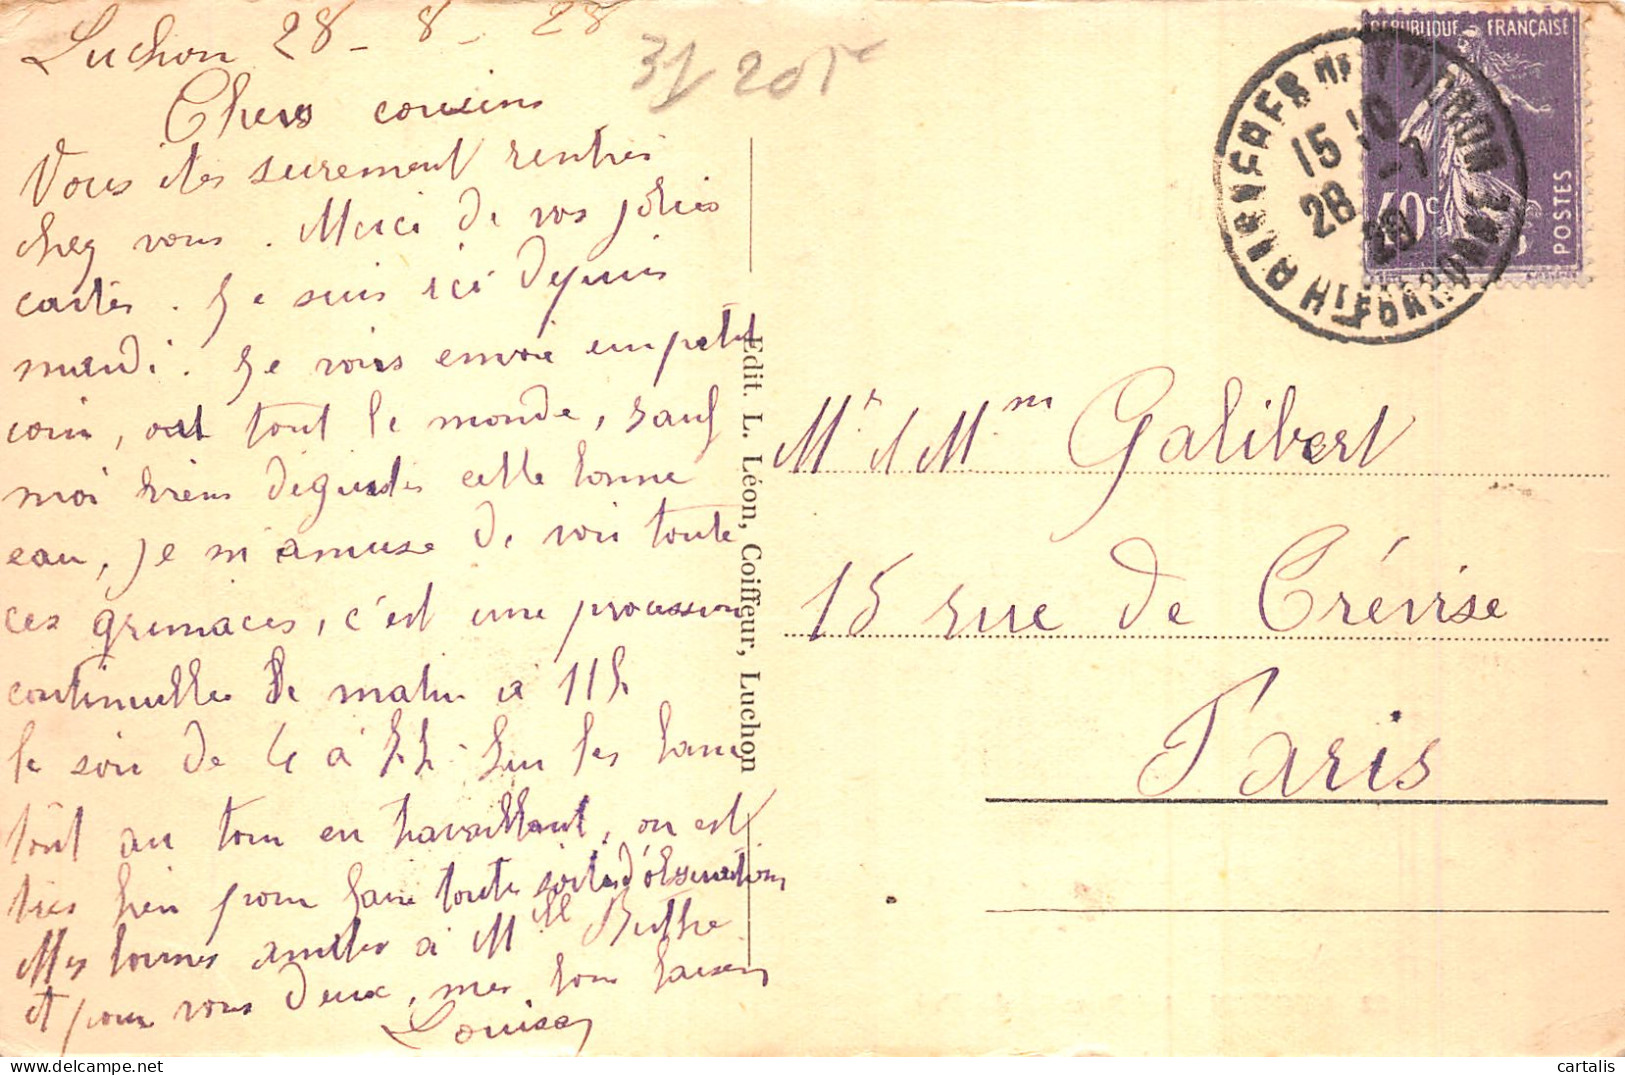 Luchon 28-8-28
31 205
Chers cousins
Vous êtes surement rentrés
chez vous. Merci de vos jolies
cartes. Je suis ici depuis
mardi. Je vous envoie un petit
coin, où tout le monde, sauf
moi viens déguster cette bonne
eau, je m'amuse de voir toute
ces grimaces, c'est une procession
continuelle de matin à 11h
le soir de 4 à 5h. Sur les bancs
tout au tour en travaillant, on est
très bien pour faire toutes sortes d'observations
Mes bonnes amitiés à Mlle Berthe
et pour vous deux, mes bons baisers
Louise
Edit. L. Léon, Coiffeur, Luchon
REPUBLIQUE FRANÇAISE
40c
POSTES
15 10
28 -7
28
HTE GARONNE
Mr et Mme Galibert
15 rue de Trévise
Paris
cartalis